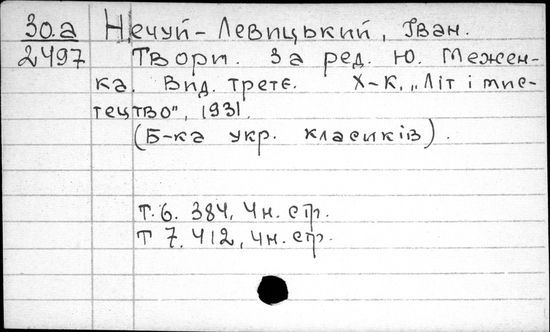 30.а Нечуй-Левицький, Іван.
2497 Твори. За ред. Ю. Межен-
ка. Вид. третє. Х-К, „Літ і мис-
тецтво", 1931.
(Б-ка укр. класиків).
т. 6. 384, 4 н. стр.
т 7. 412, 4 н. стр.